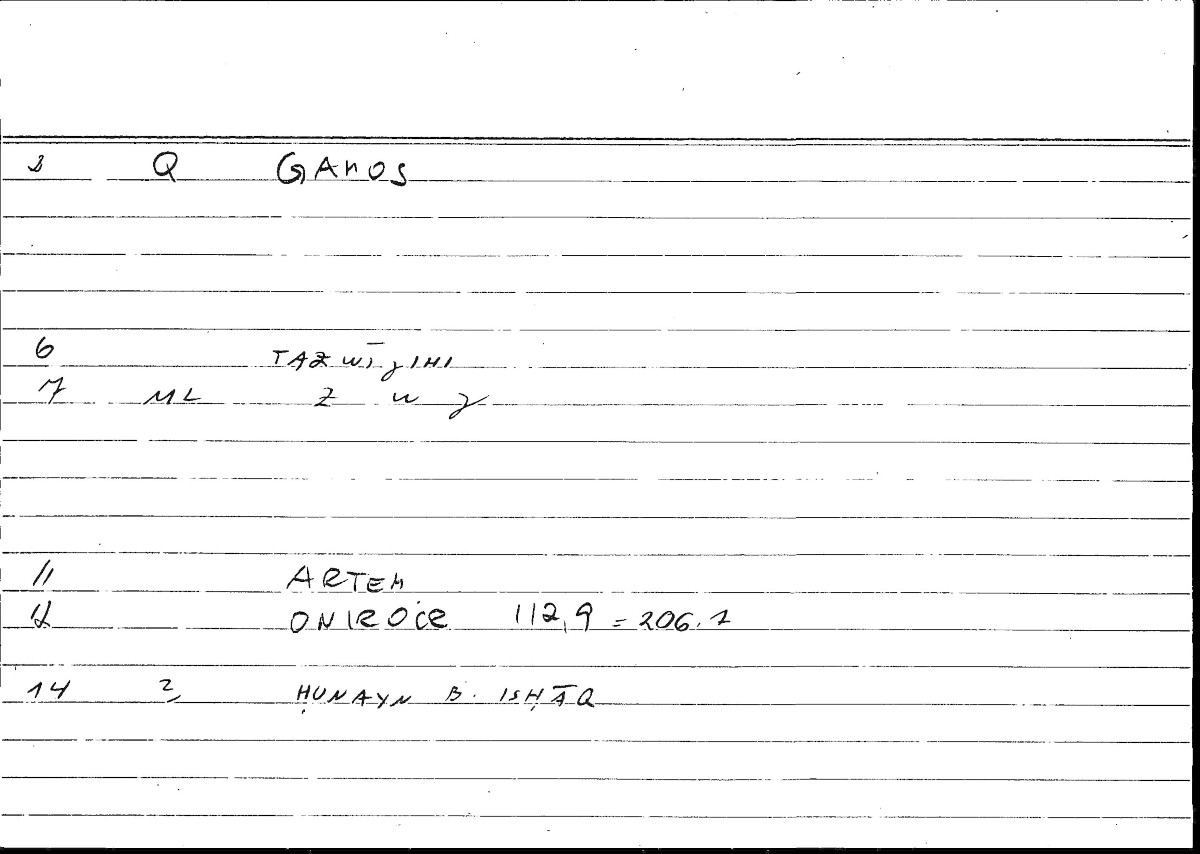 2 Q GAMOS
6 TAZWĪJIHI
7 ML Z W J
11 ARTEM
12 ONIROCR 112,9 = 206.1
14 2, ḤUNAYN B. ISḤĀQ